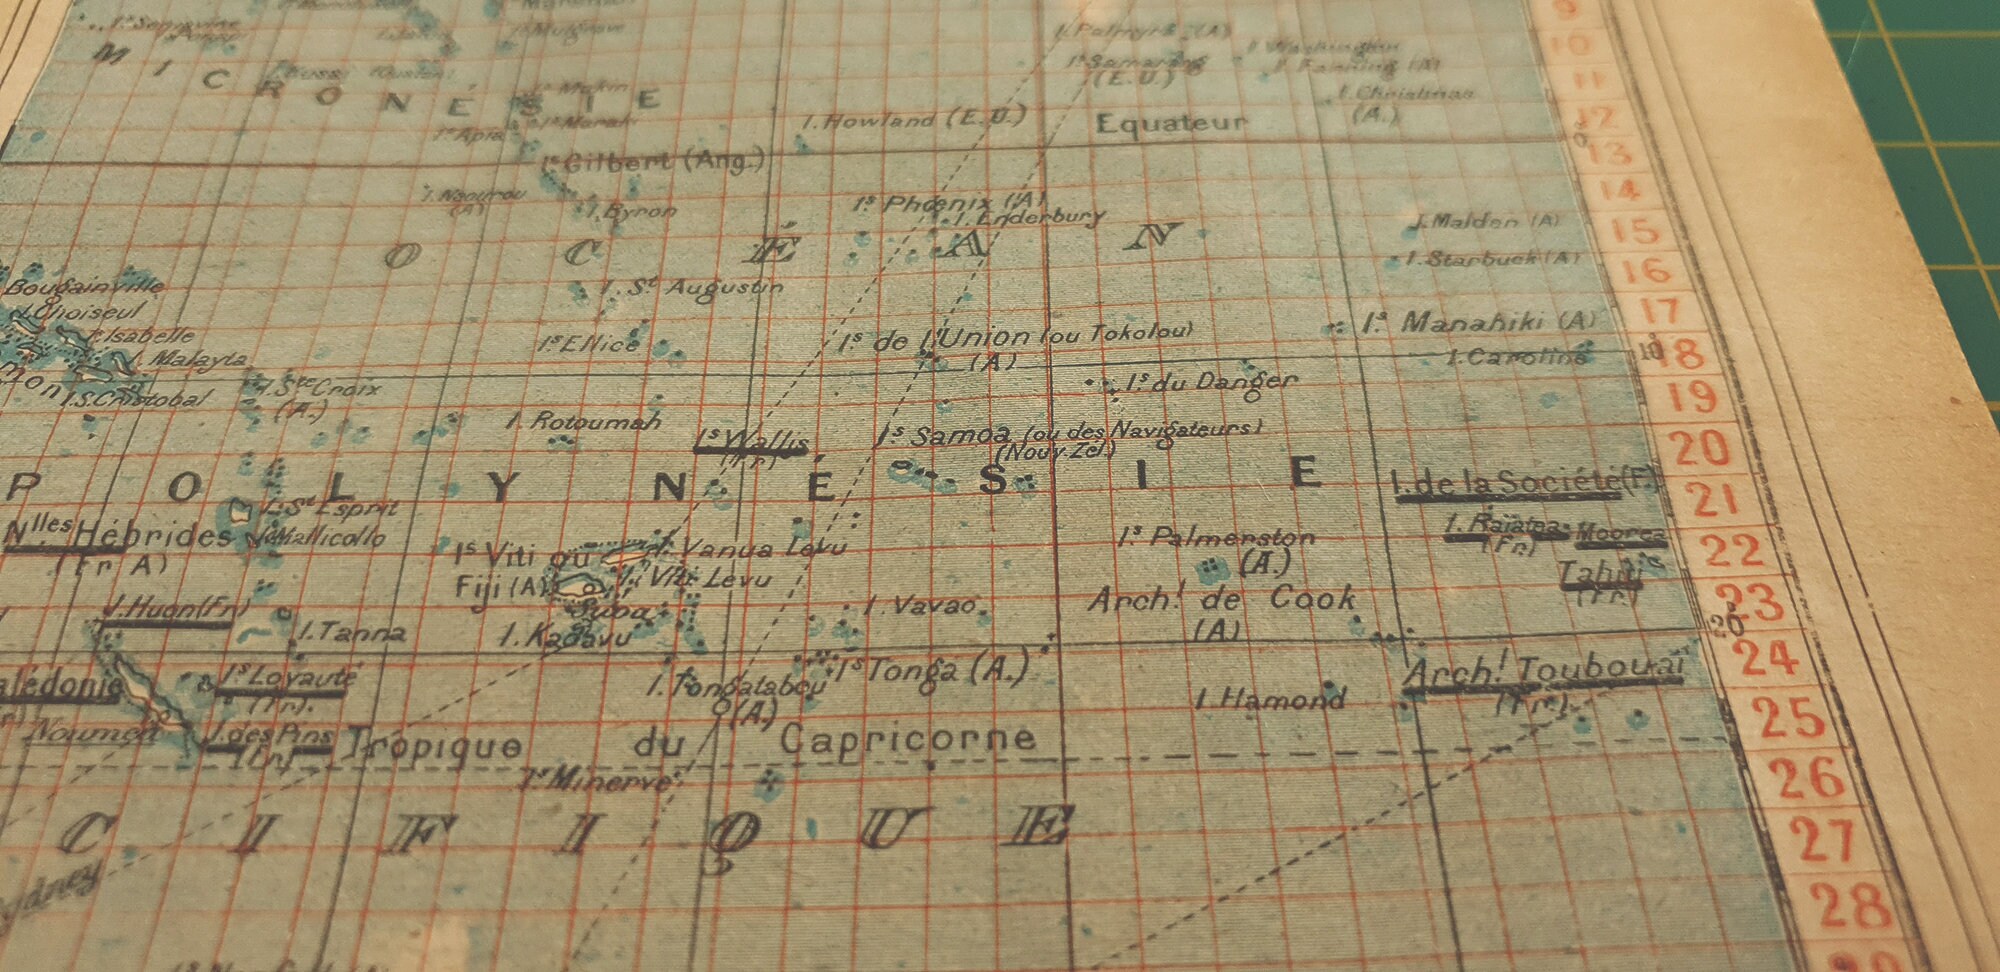 9
10
11
12
0
13
14
15
16
17
10
18
19
20
21
22
23
20
24
25
26
27
28
MICRONÉSIE
I. Palmyre (A)
Is Samarang
(E.U.)
I. Washington
I. Fanning (A)
I. Christmas
(A.)
Is Makin
Is Marah
Is Apia
I. Howland (E.U.)
Equateur
Is Gilbert (Ang.)
I. Naourou
(A)
I. Byron
Is Phœnix (A)
I. Enderbury
I. Malden (A)
I. Starbuck (A)
OCÉAN
Bougainville
I. Choiseul
I. Isabelle
I. Malayta
I. S. Cristobal
I. St Augustin
Is Ellice
Is de l'Union (ou Tokolou)
(A)
Is Manahiki (A)
I. Caroline
I. Ste Croix
(A.)
Is du Danger
I. Rotoumah
Is Wallis
(Fr)
Is Samoa (ou des Navigateurs)
(Nouv. Zel.)
POLYNÉSIE
I. de la Société (F.)
I. St Esprit
I. Mallicollo
Nlles Hébrides
(Fr A)
I. Raiatea
(Fr)
Moorea
Tahiti
(Fr.)
Is Viti ou
Fiji (A)
I. Vanua Levu
I. Viti Levu
Suba
I. Kadavu
Is Palmerston
(A.)
I. Huon (Fr)
I. Tanna
I. Vavao
Arch! de Cook
(A)
Is Loyauté
(Fr).
alédonie
Nouméa
I. des Pins
(Fr)
I. Tongatabou
(A)
Is Tonga (A.)
I. Hamond
Arch! Toubouaï
(Fr).
Tropique du Capricorne
Is Minerve
CIFIQUE
ydney